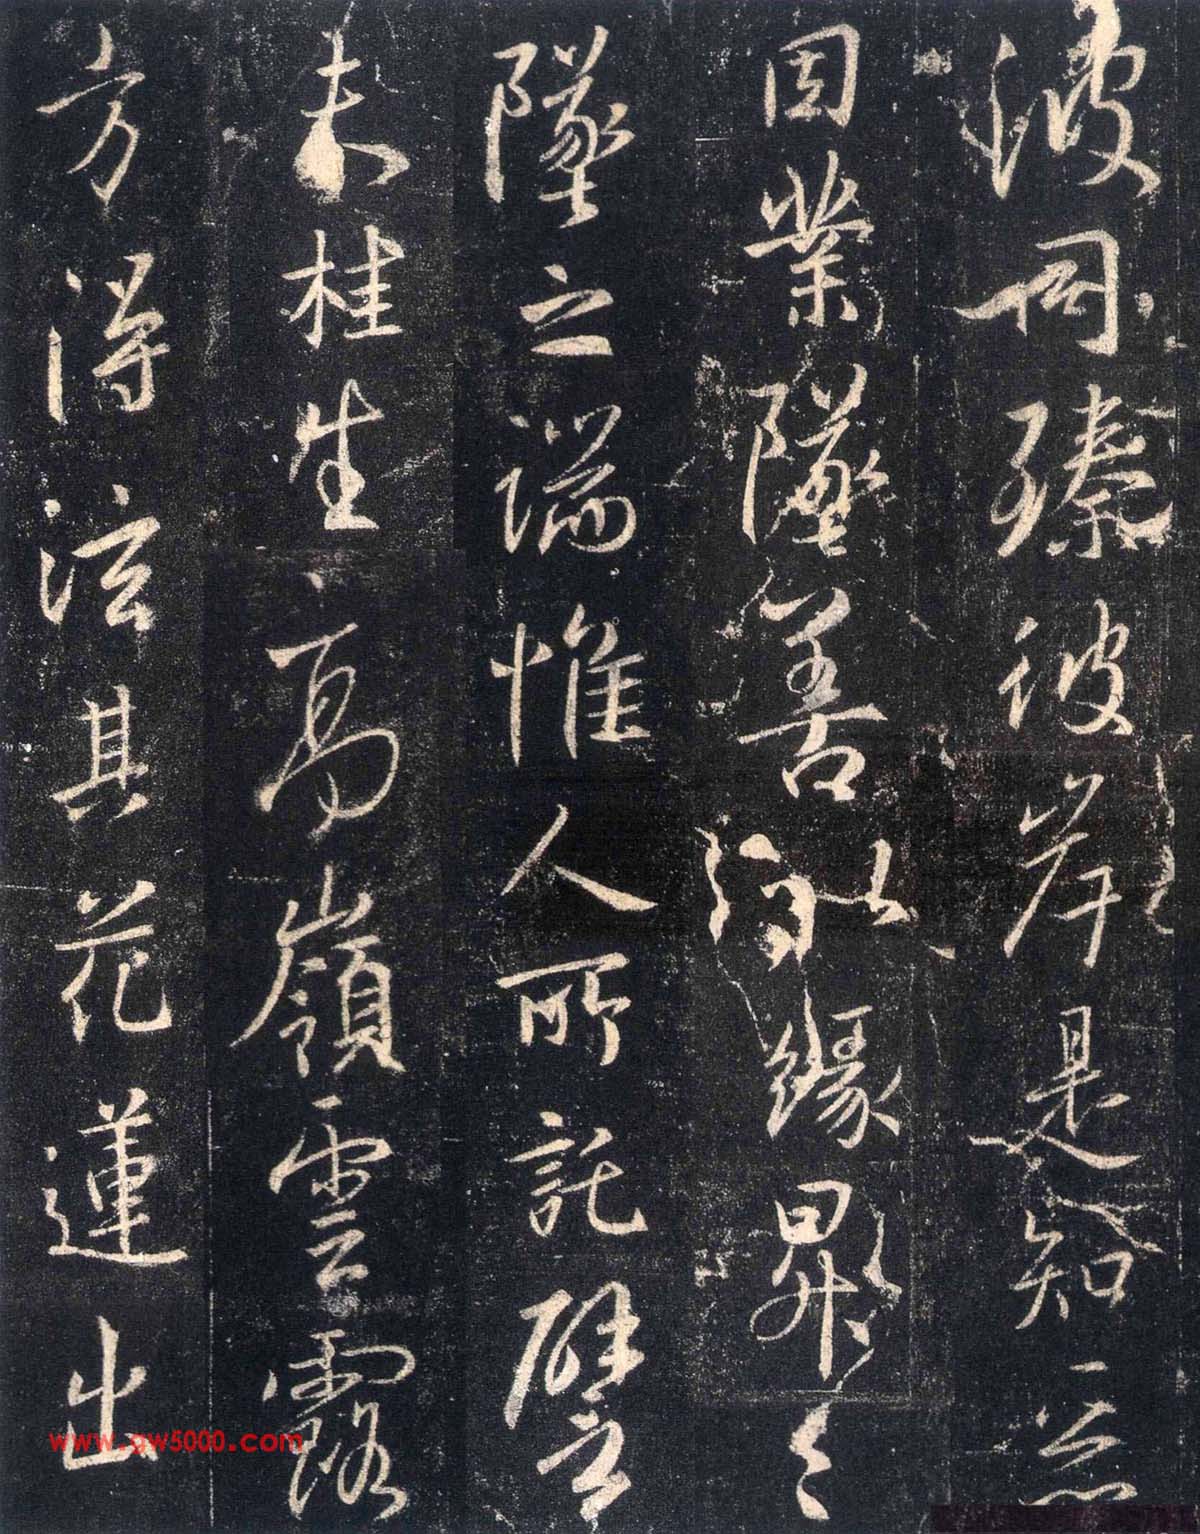 波同臻彼岸是知惡
因業墜善以緣昇〻
墜之端惟人所託譬
夫桂生高嶺雲露
方得泫其花蓮出
www.gw5000.com